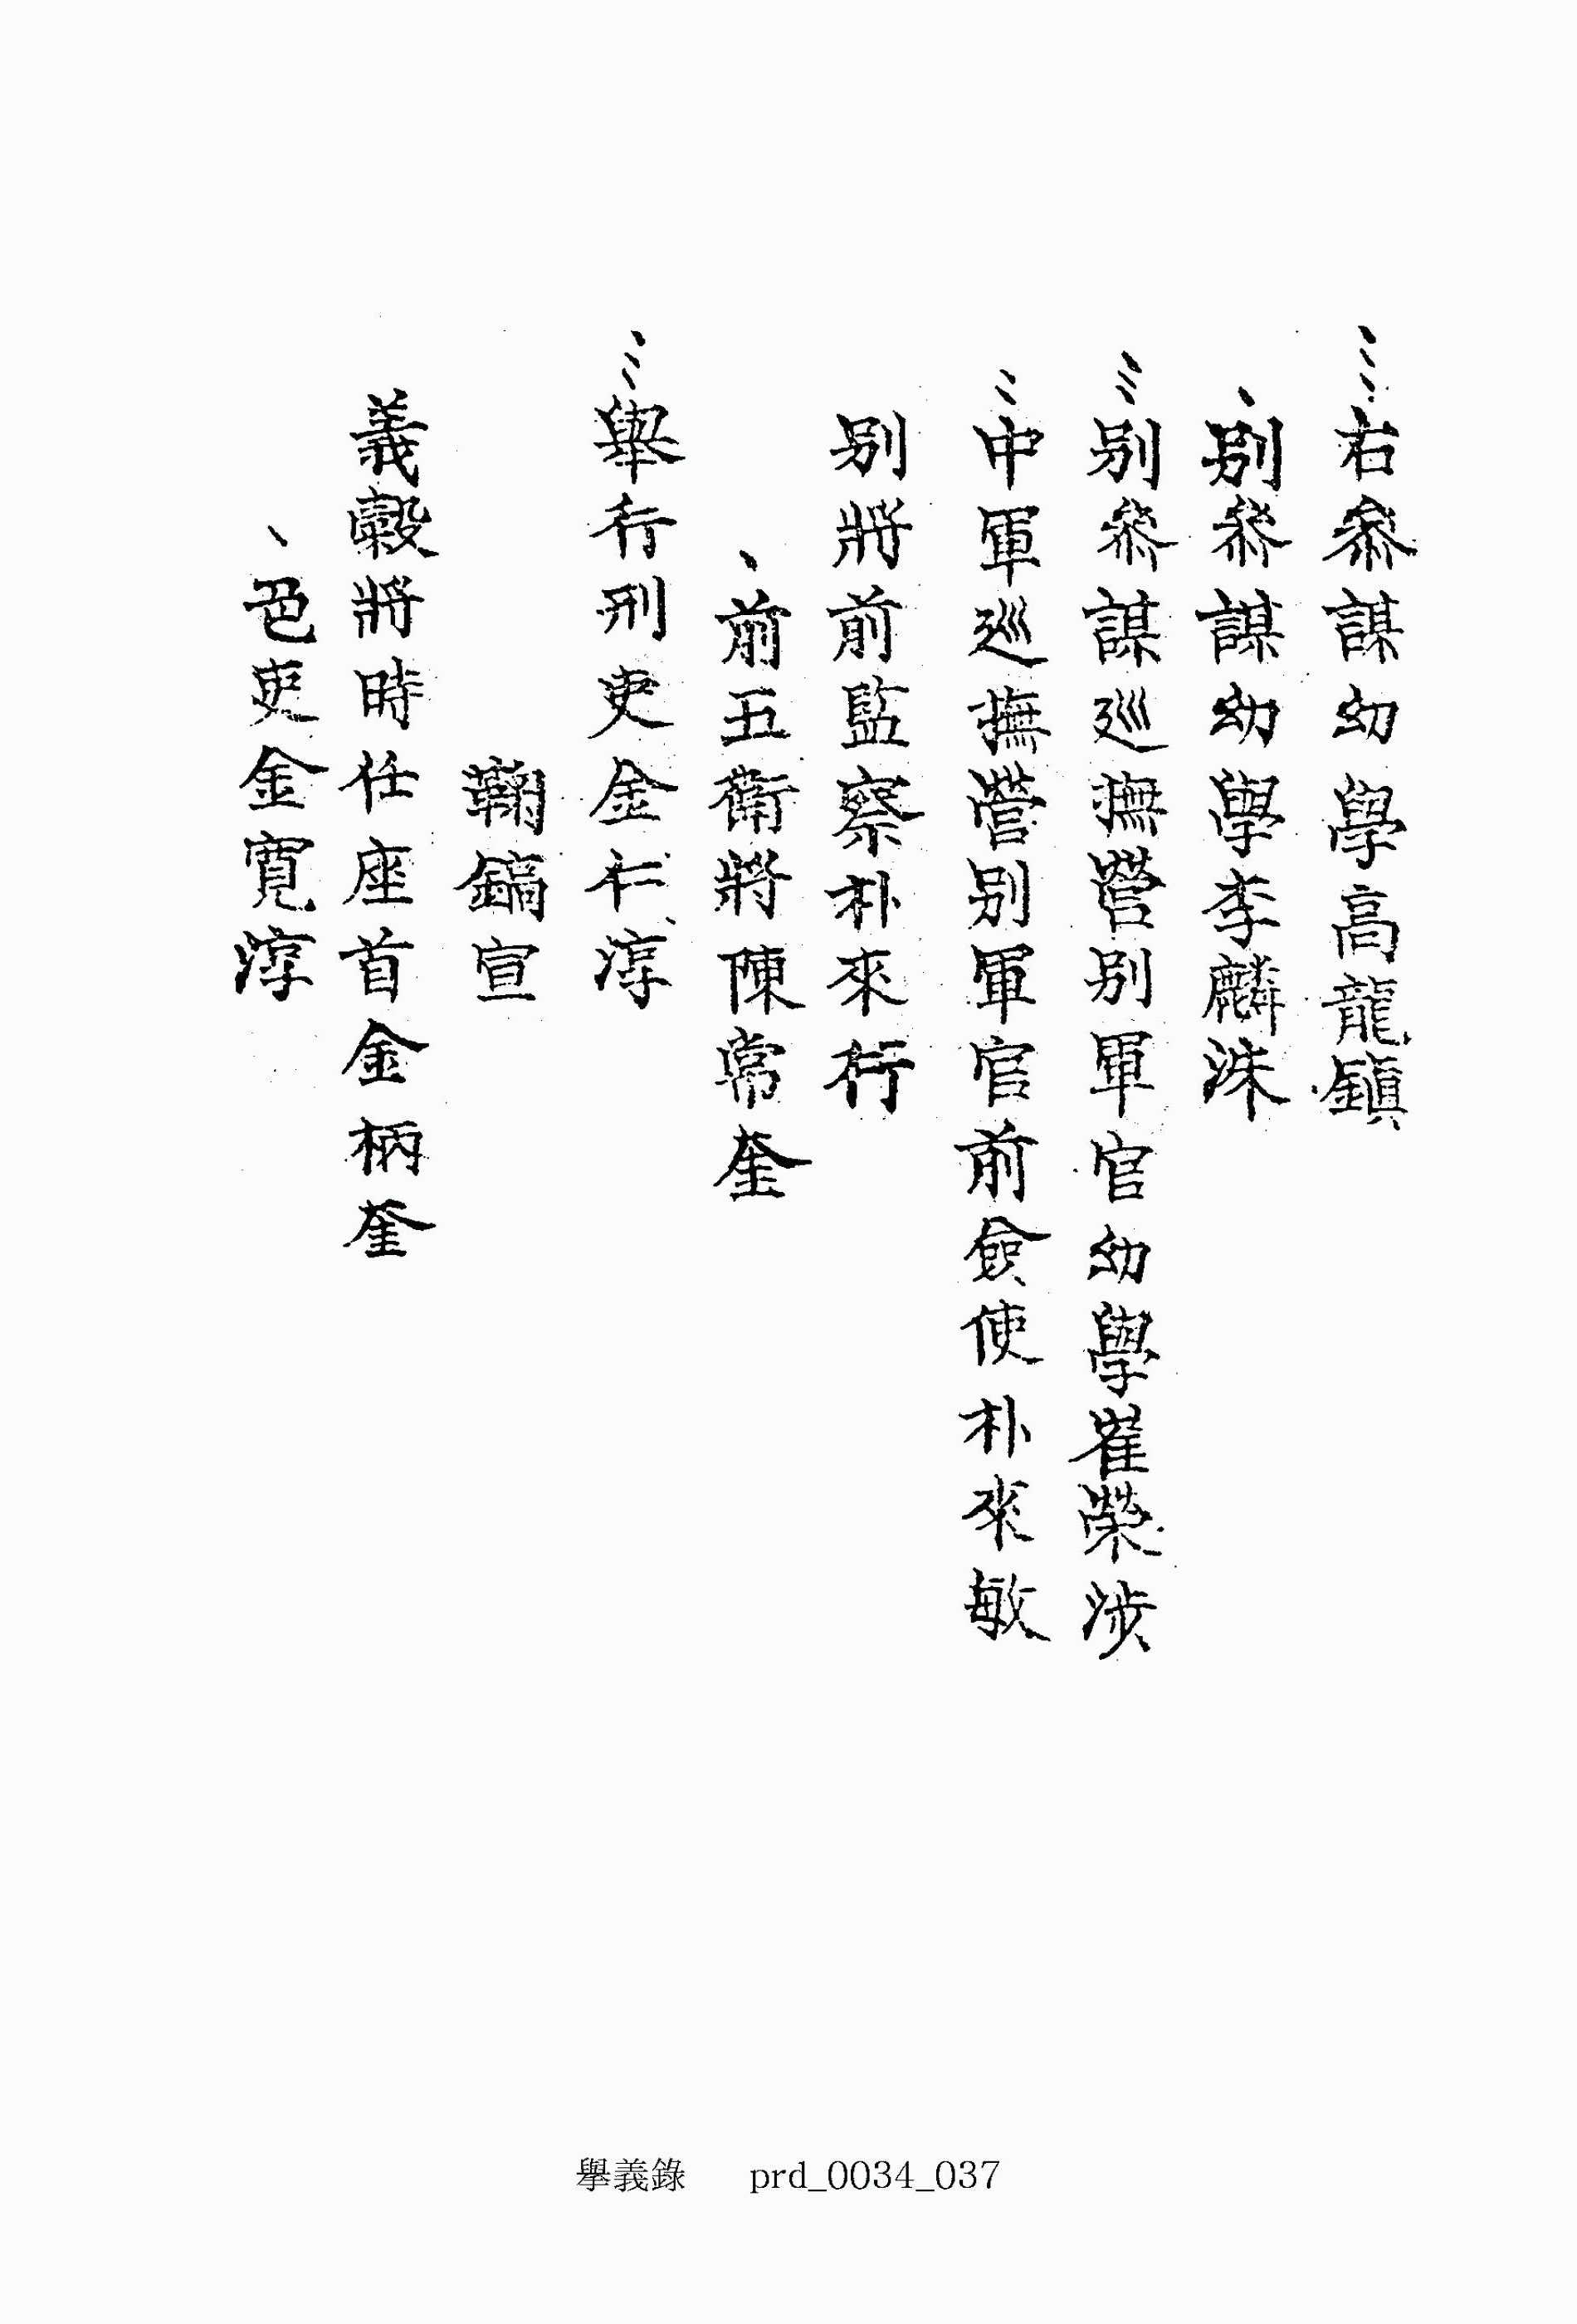 右參謀幼學高龍鎭
別參謀幼學李麟洙
別參謀巡撫營別軍官幼學崔榮涉
中軍巡撫營別軍官前僉使朴來敏
別將前監察朴來衍
前五衛將陳常奎
擧行刑吏金仁淳
鞠鎬宣
義穀將時任座首金柄奎
色吏金寬淳
擧義錄 prd_0034_037